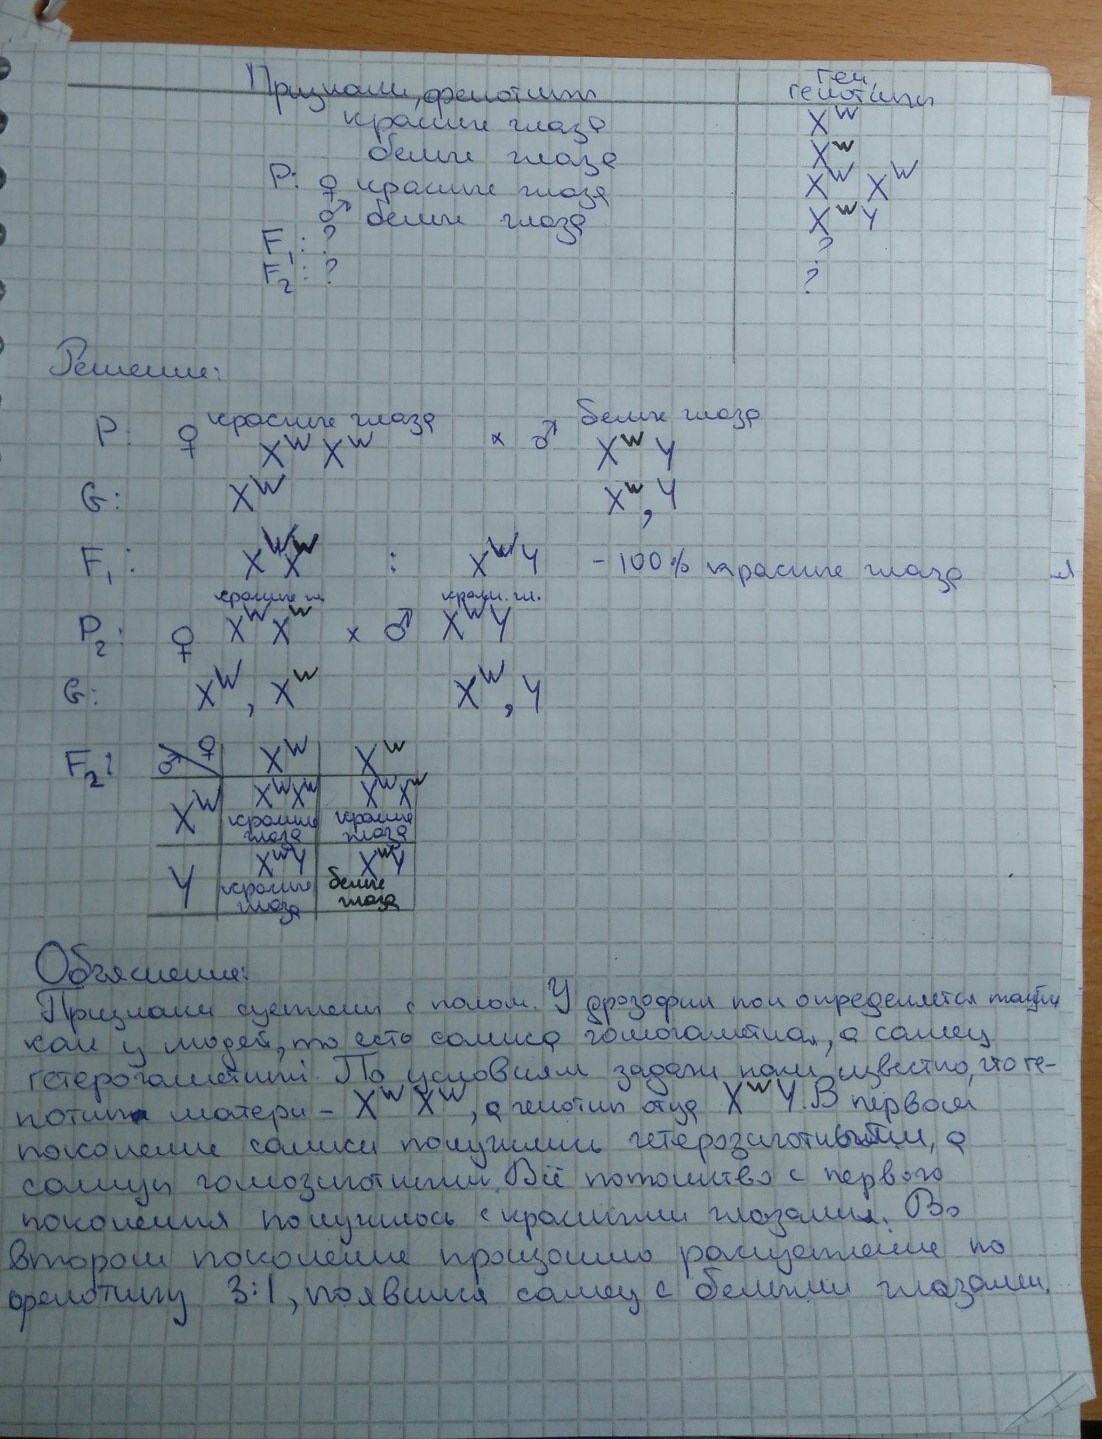 Признаки, фенотипы
ген, генотипы
красные глаза X^W
белые глаза X^w
P: ♀ красные глаза X^W X^W
♂ белые глаза X^w Y
F₁: ? ?
F₂: ? ?
Решение:
красные глаза белые глаза
P: ♀ X^W X^W × ♂ X^w Y
G: X^W X^w, Y
F₁: X^W X^w : X^W Y - 100% красные глаза
красные гл. красн. гл.
P₂: ♀ X^W X^w × ♂ X^W Y
G: X^W, X^w X^W, Y
F₂: ♂ ♀ X^W X^w
X^W X^W X^W X^W X^w
красные глаза красные глаза
Y X^W Y X^w Y
красные глаза белые глаза
Объяснение:
Признаки сцеплены с полом. У дрозофил пол определяется
как у людей, то есть самка гомогаметна, а самец
гетерогаметный. По условиям задачи нам известно, что ге-
нотип матери - X^W X^W, а генотип отца X^w Y. В первом
поколение самки получились гетерозиготными, а
самцы гомозиготными. Всё потомство с первого
поколения получилось с красными глазами. Во
втором поколение произошло расщепление по
фенотипу 3:1, появился самец с белыми глазами.